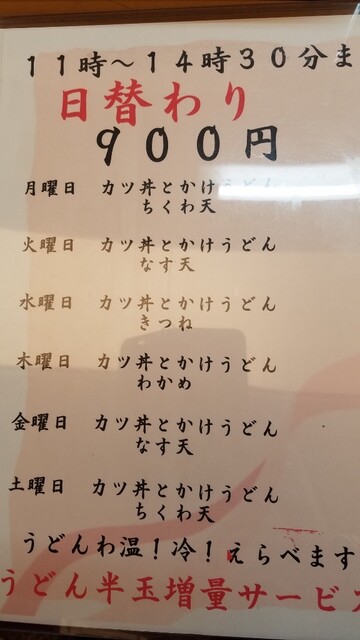 11時～14時30分ま
日替わり
900円
月曜日 カツ丼とかけうどん
ちくわ天
火曜日 カツ丼とかけうどん
なす天
水曜日 カツ丼とかけうどん
きつね
木曜日 カツ丼とかけうどん
わかめ
金曜日 カツ丼とかけうどん
なす天
土曜日 カツ丼とかけうどん
ちくわ天
うどんわ温！冷！えらべます
うどん半玉増量サービス